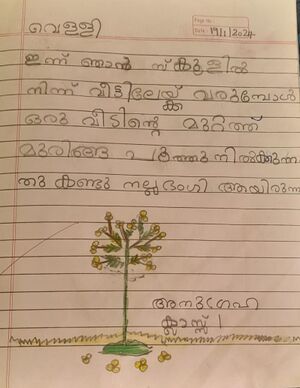 വെള്ളി
Page No.
Date 19/1/2024
ഇന്ന് ഞാൻ സ്കൂളിൽ
നിന്ന് വീട്ടിലേയ്ക്ക വരുമ്പോൾ
ഒരു വീടിന്റെ മുറ്റത്ത്
മുരിങ്ങ പൂത്തുനിൽക്കുന്ന
തു കണ്ടു നല്ലഭംഗി ആയിരുന്ന
അനുഗ്രഹ
ക്ലാസ്സ് 1